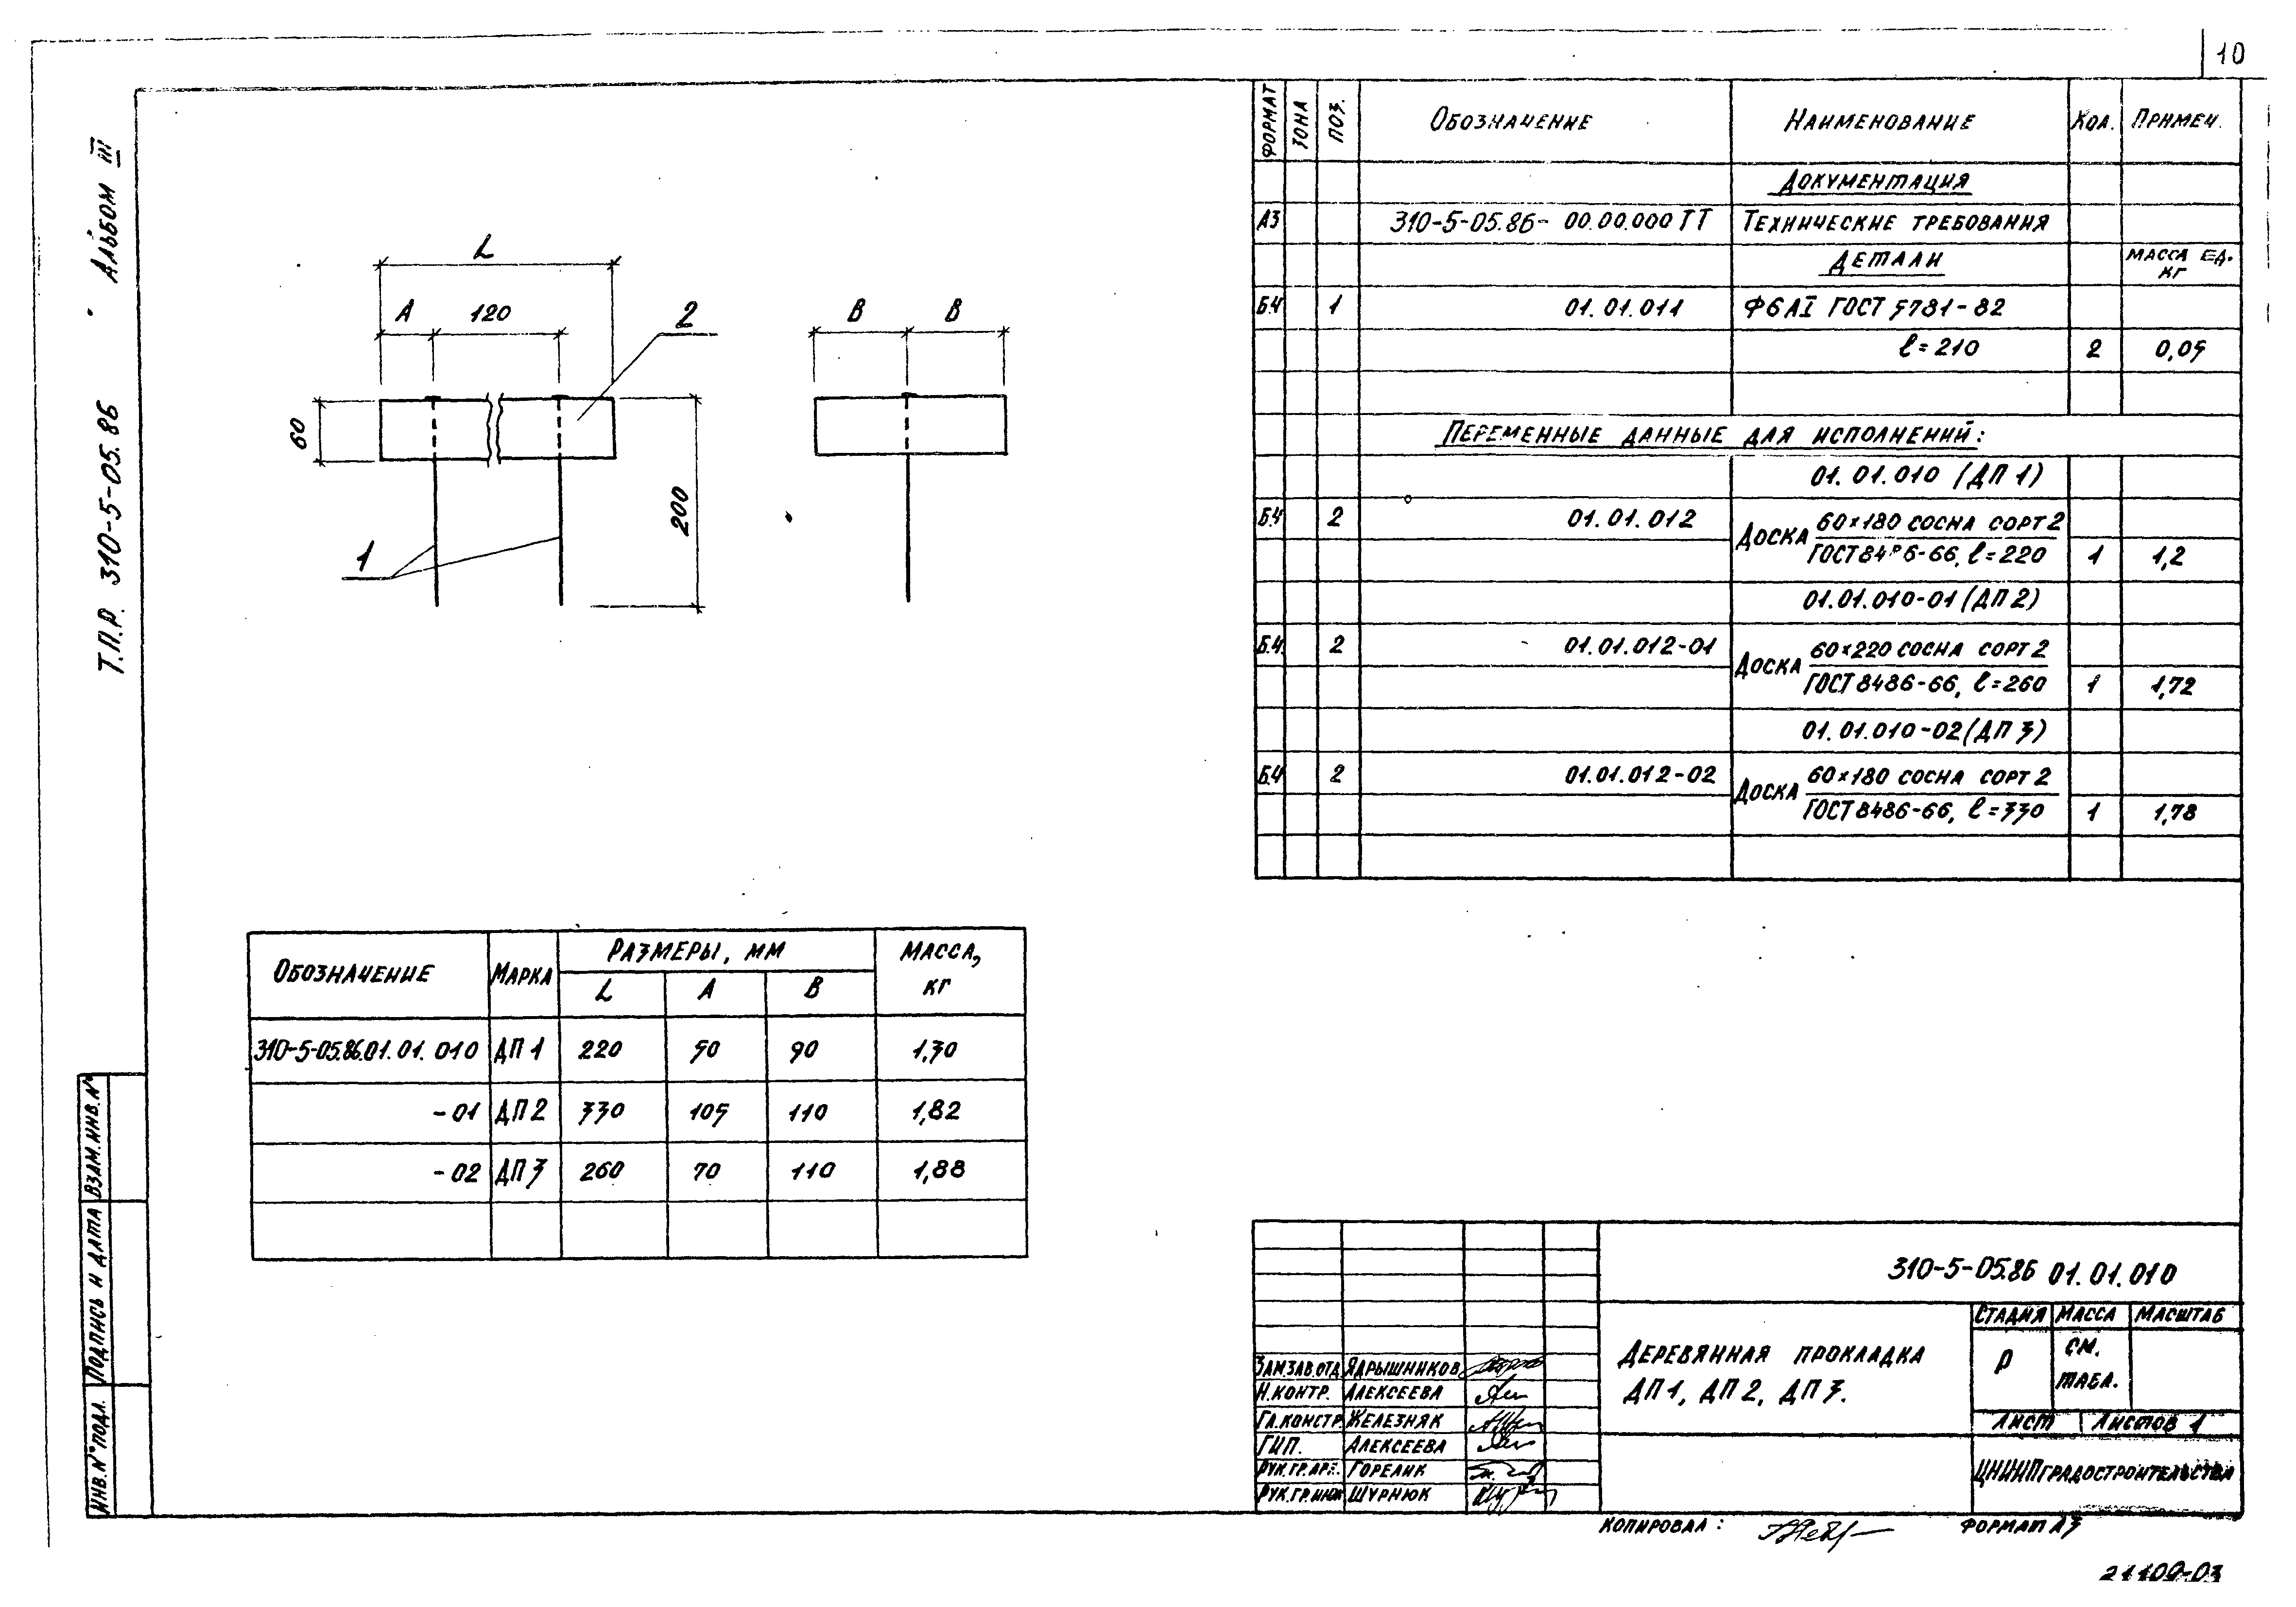 10
Альбом III
Т.П.Р. 310-5-05.86
L
А 120
2
В В
60
200
1
Формат Зона Поз. Обозначение Наименование Кол. Примеч.
Документация
А3 310-5-05.86- 00.00.000 ТТ Технические требования
Детали Масса ед. кг
Б.Ч 1 01.01.011 Ф6АI ГОСТ 5781-82
ℓ=210 2 0,05
Переменные данные для исполнений:
01.01.010 (ДП 1)
Б.Ч 2 01.01.012 Доска 60×180 сосна сорт 2
ГОСТ 8486-66, ℓ=220 1 1,2
01.01.010-01 (ДП 2)
Б.Ч. 2 01.01.012-01 Доска 60×220 сосна сорт 2
ГОСТ 8486-66, ℓ=260 1 1,72
01.01.010-02 (ДП 3)
Б.Ч 2 01.01.012-02 Доска 60×180 сосна сорт 2
ГОСТ 8486-66, ℓ=330 1 1,78
Обозначение Марка Размеры, мм Масса, кг
L А В
310-5-05.86.01.01.010 ДП 1 220 50 90 1,30
-01 ДП 2 330 105 110 1,82
-02 ДП 3 260 70 110 1,88
Взам. инв. №
Подпись и дата
Инв. № подл.
310-5-05.86 01.01.010
Стадия Масса Масштаб
Деревянная прокладка
ДП 1, ДП 2, ДП 3.
Р см. табл.
Лист Листов 1
ЦНИИПградостроительства
Зам.зав.отд. Ядрышников
Н.контр. Алексеева
Гл.констр. Железняк
ГИП. Алексеева
Рук.гр.арх. Горелик
Рук.гр.инж. Шурнюк
Копировал: Формат А3
21109-03